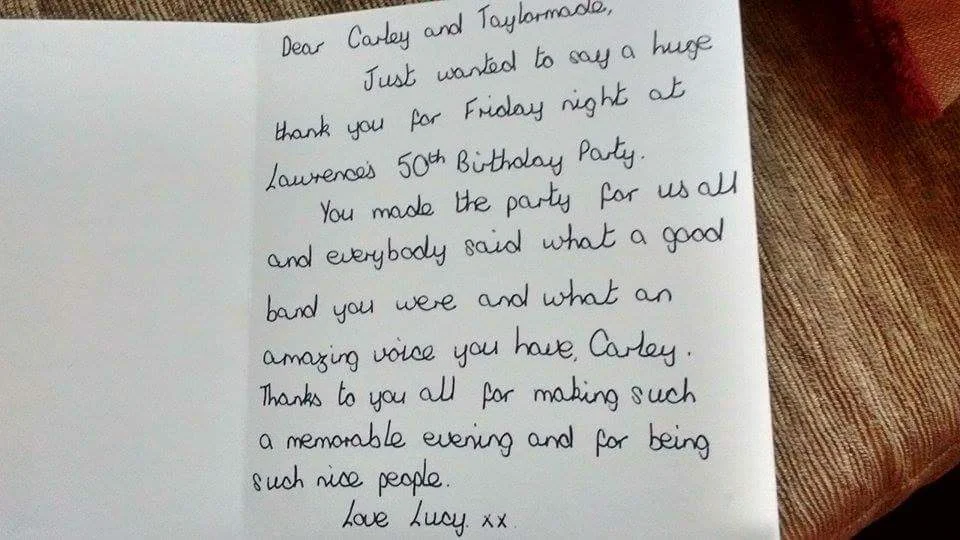 Dear Carley and Taylormade,
Just wanted to say a huge
thank you for Friday night at
Lawrence's 50th Birthday Party.
You made the party for us all
and everybody said what a good
band you were and what an
amazing voice you have, Carley.
Thanks to you all for making such
a memorable evening and for being
such nice people.
Love Lucy. xx.